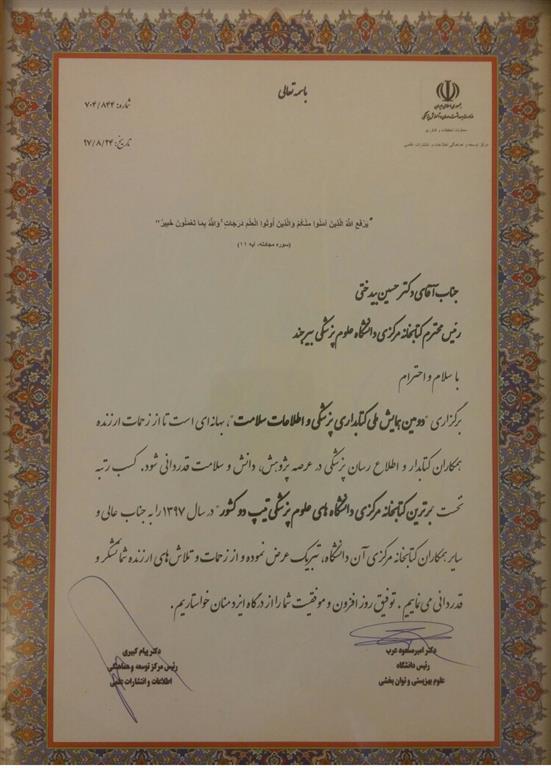 باسمه تعالی
شماره: ۷۰۴/۸۴۴
تاریخ: ۹۷/۸/۲۴
جمهوری اسلامی ایران
وزارت بهداشت، درمان و آموزش پزشکی
معاونت تحقیقات و فناوری
مرکز توسعه و هماهنگی اطلاعات و انتشارات علمی
"یَرْفَعِ اللَّهُ الَّذِینَ آمَنُوا مِنْکُمْ وَالَّذِینَ أُوتُوا الْعِلْمَ دَرَجَاتٍ ۚ وَاللَّهُ بِمَا تَعْمَلُونَ خَبِیرٌ"
(سوره مجادله، آیه ۱۱)
جناب آقای دکتر حسین بیدختی
رئیس محترم کتابخانه مرکزی دانشگاه علوم پزشکی بیرجند
با سلام و احترام
برگزاری "دومین همایش ملی کتابداری پزشکی و اطلاعات سلامت"، بهانه‌ای است تا از زحمات ارزنده
همکاران کتابدار و اطلاع رسان پزشکی در عرصه پژوهش، دانش و سلامت قدردانی شود. کسب رتبه
نخست "برترین کتابخانه مرکزی دانشگاه های علوم پزشکی تیپ دو کشور" در سال ۱۳۹۷ را به جناب عالی و
سایر همکاران کتابخانه مرکزی آن دانشگاه، تبریک عرض نموده و از زحمات و تلاش های ارزنده شما تشکر و
قدردانی می نماییم. توفیق روز افزون و موفقیت شما را از درگاه ایزد منان خواستاریم.
دکتر امیرمسعود عرب
رئیس دانشگاه
علوم بهزیستی و توان بخشی
دکتر پیام کبیری
رئیس مرکز توسعه و هماهنگی
اطلاعات و انتشارات علمی